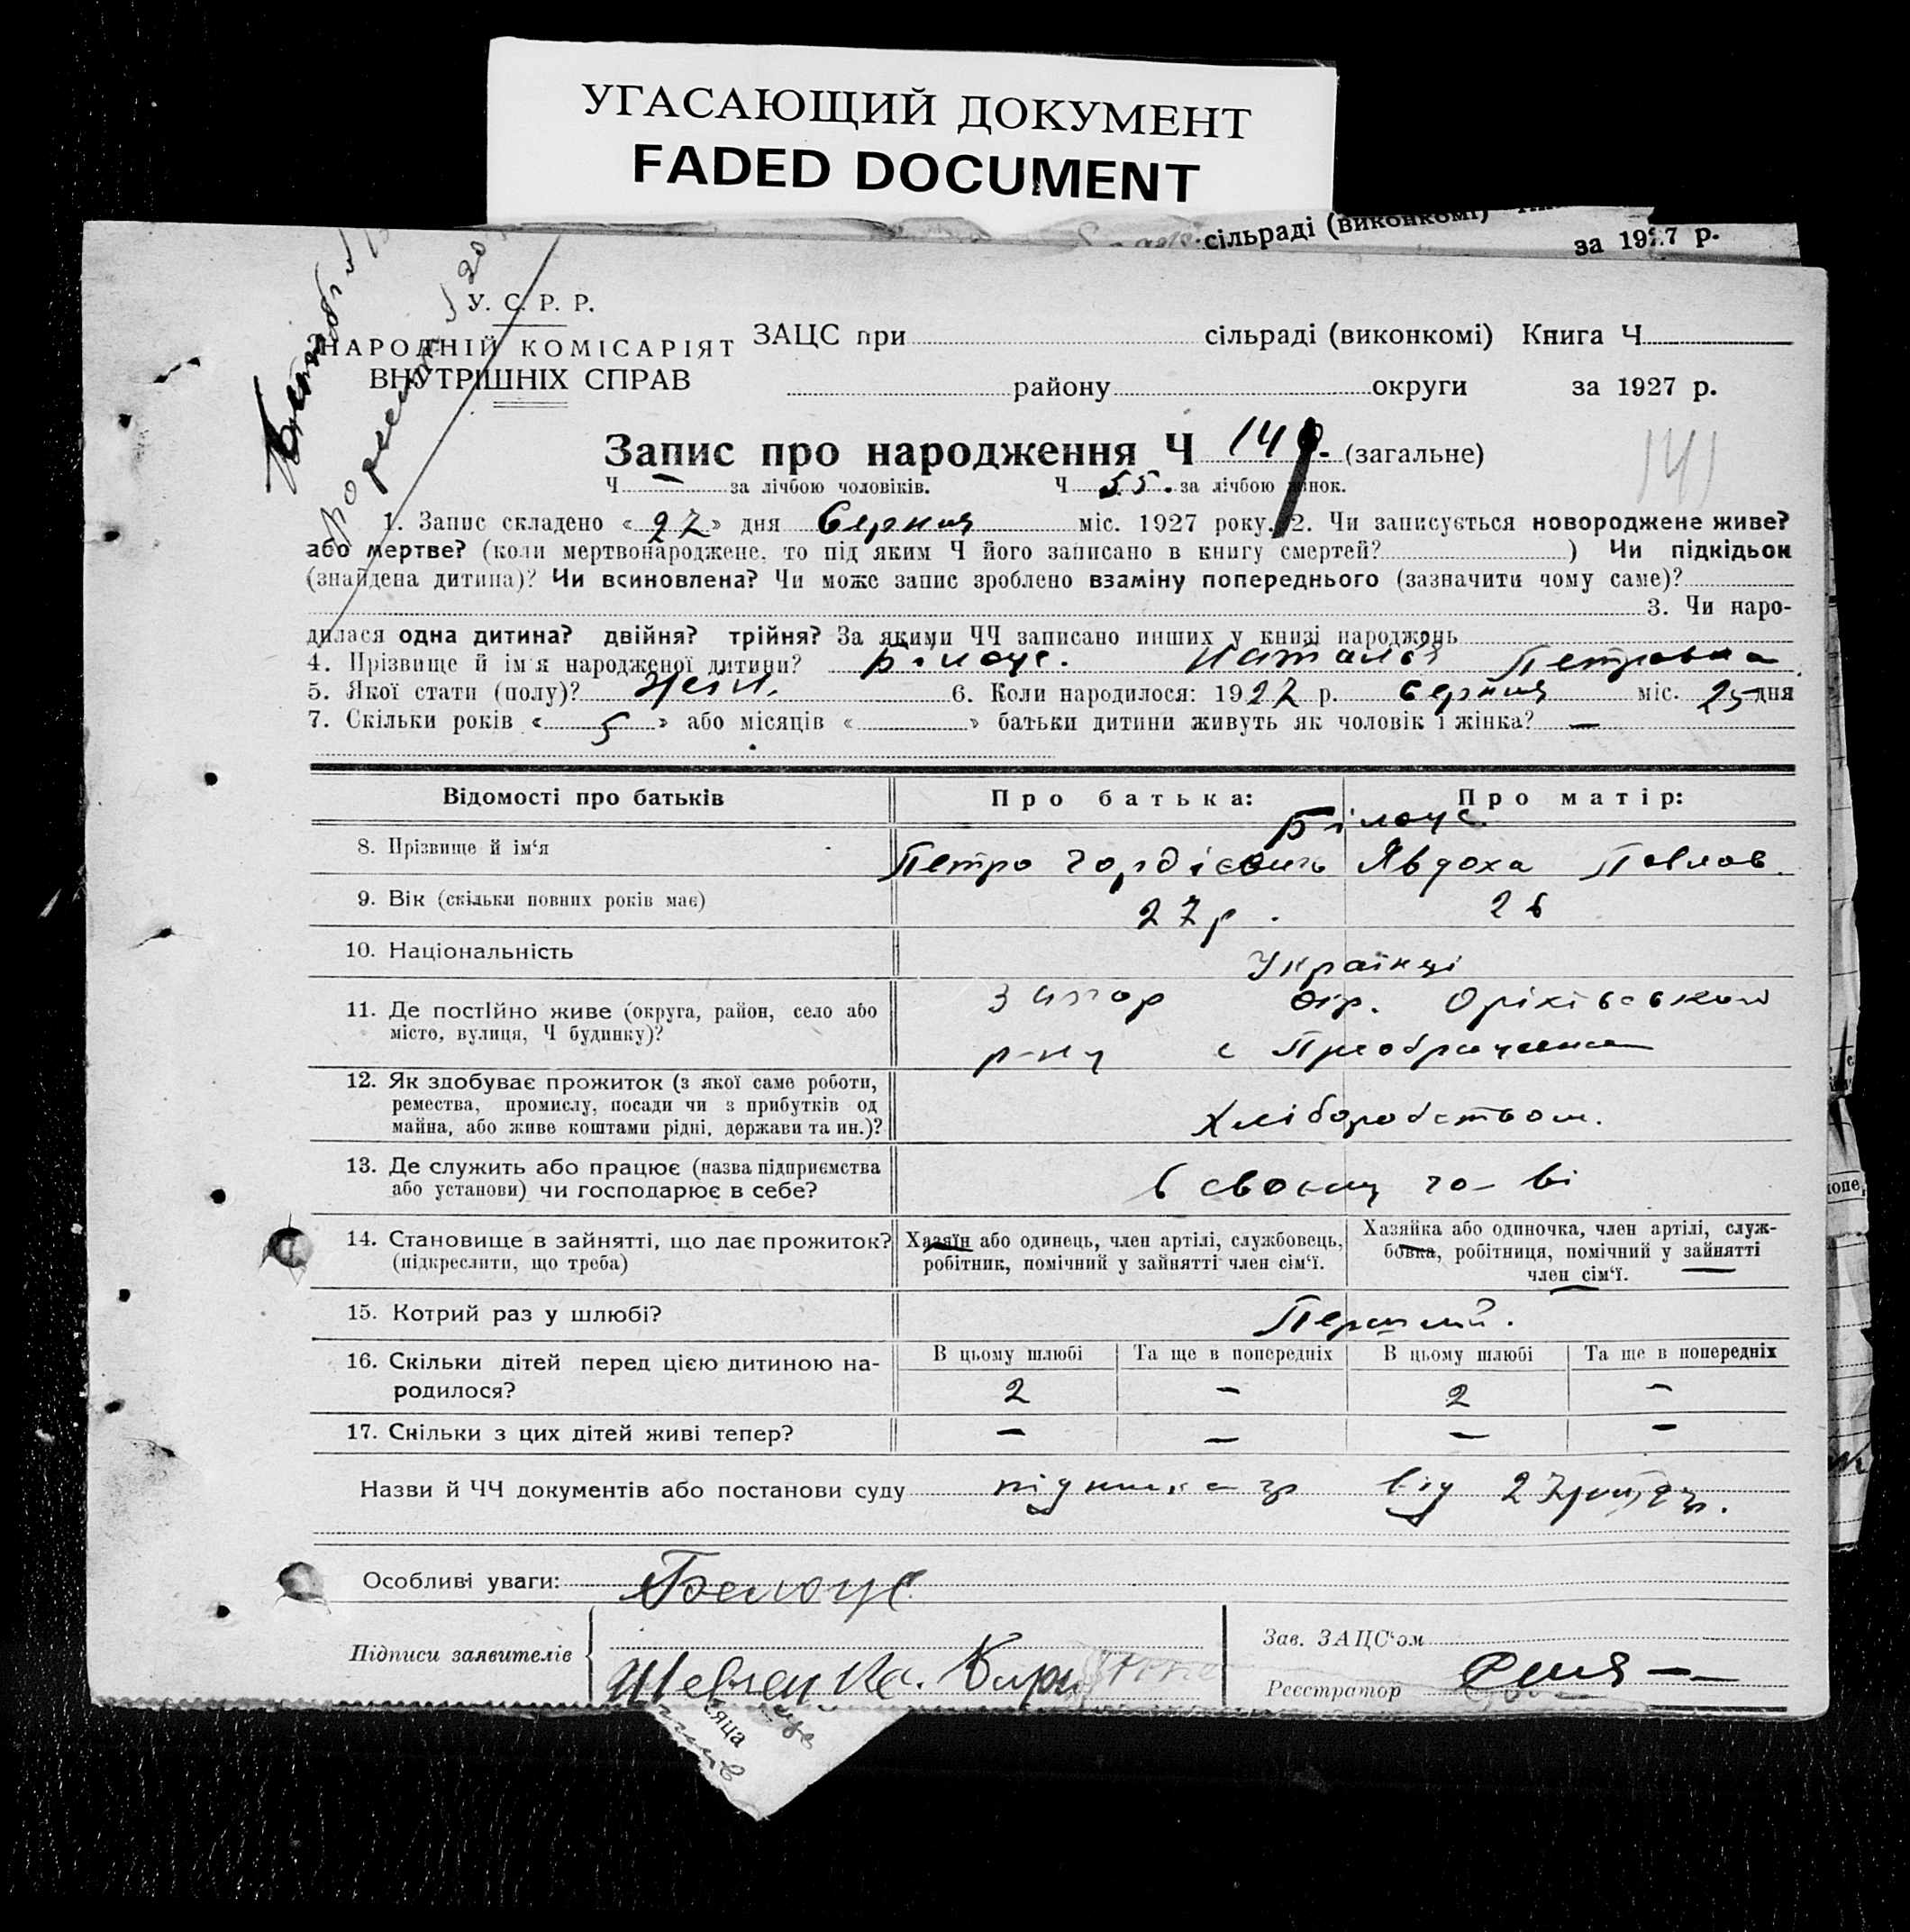 УГАСАЮЩИЙ ДОКУМЕНТ
FADED DOCUMENT
сільраді (виконкомі)
за 1927 р.
У. С. Р. Р.
НАРОДНІЙ КОМІСАРІЯТ
ВНУТРІШНІХ СПРАВ
ЗАЦС при сільраді (виконкомі) Книга Ч
району округи за 1927 р.
Запис про народження Ч 140. (загальне)
141
Ч — за лічбою чоловіків. Ч 55. за лічбою жінок.
1. Запис складено « 27 » дня Серпня міс. 1927 року. 2. Чи записується новороджене живе?
або мертве? (коли мертвонароджене, то під яким Ч його записано в книгу смертей? ) Чи підкідьок
(знайдена дитина)? Чи всиновлена? Чи може запис зроблено взаміну попереднього (зазначити чому саме)?
3. Чи наро-
дилася одна дитина? двійня? трійня? За якими ЧЧ записано инших у книзі народжень
4. Прізвище й ім'я народженої дитини? Білоус. Наталія Петровна
5. Якої стати (полу)? Жін. 6. Коли народилося: 1927 р. Серпня міс. 25 дня
7. Скільки років « 5 » або місяців « » батьки дитини живуть як чоловік і жінка? —
Відомості про батьків Про батька: Про матір:
Білоус
8. Прізвище й ім'я Петро Гордієвич Явдоха Павлов.
9. Вік (скільки повних років має) 27 р. 26
10. Національність Українці
11. Де постійно живе (округа, район, село або
місто, вулиця, Ч будинку)?
Запор окр. Оріхівськом
р-ну с Преображенка
12. Як здобуває прожиток (з якої саме роботи,
ремества, промислу, посади чи з прибутків од
майна, або живе коштами рідні, держави та ин.)?
Хліборобством.
13. Де служить або працює (назва підприємства
або установи) чи господарює в себе?
в своєму го-ві
14. Становище в зайнятті, що дає прожиток?
(підкреслити, що треба)
Хазяїн або одинець, член артілі, службовець,
робітник, помічний у зайнятті член сім'ї.
Хазяйка або одиночка, член артілі, служ-
бовка, робітниця, помічний у зайнятті
член сім'ї.
15. Котрий раз у шлюбі? Перший.
16. Скільки дітей перед цією дитиною на-
родилося?
В цьому шлюбі Та ще в попередніх В цьому шлюбі Та ще в попередніх
2 — 2 —
17. Скільки з цих дітей живі тепер? — — — —
Назви й ЧЧ документів або постанови суду підписка від
Особливі уваги: Белоус
Підписи заявителів Шевченко.
Зав. ЗАЦС'ом
Реєстратор